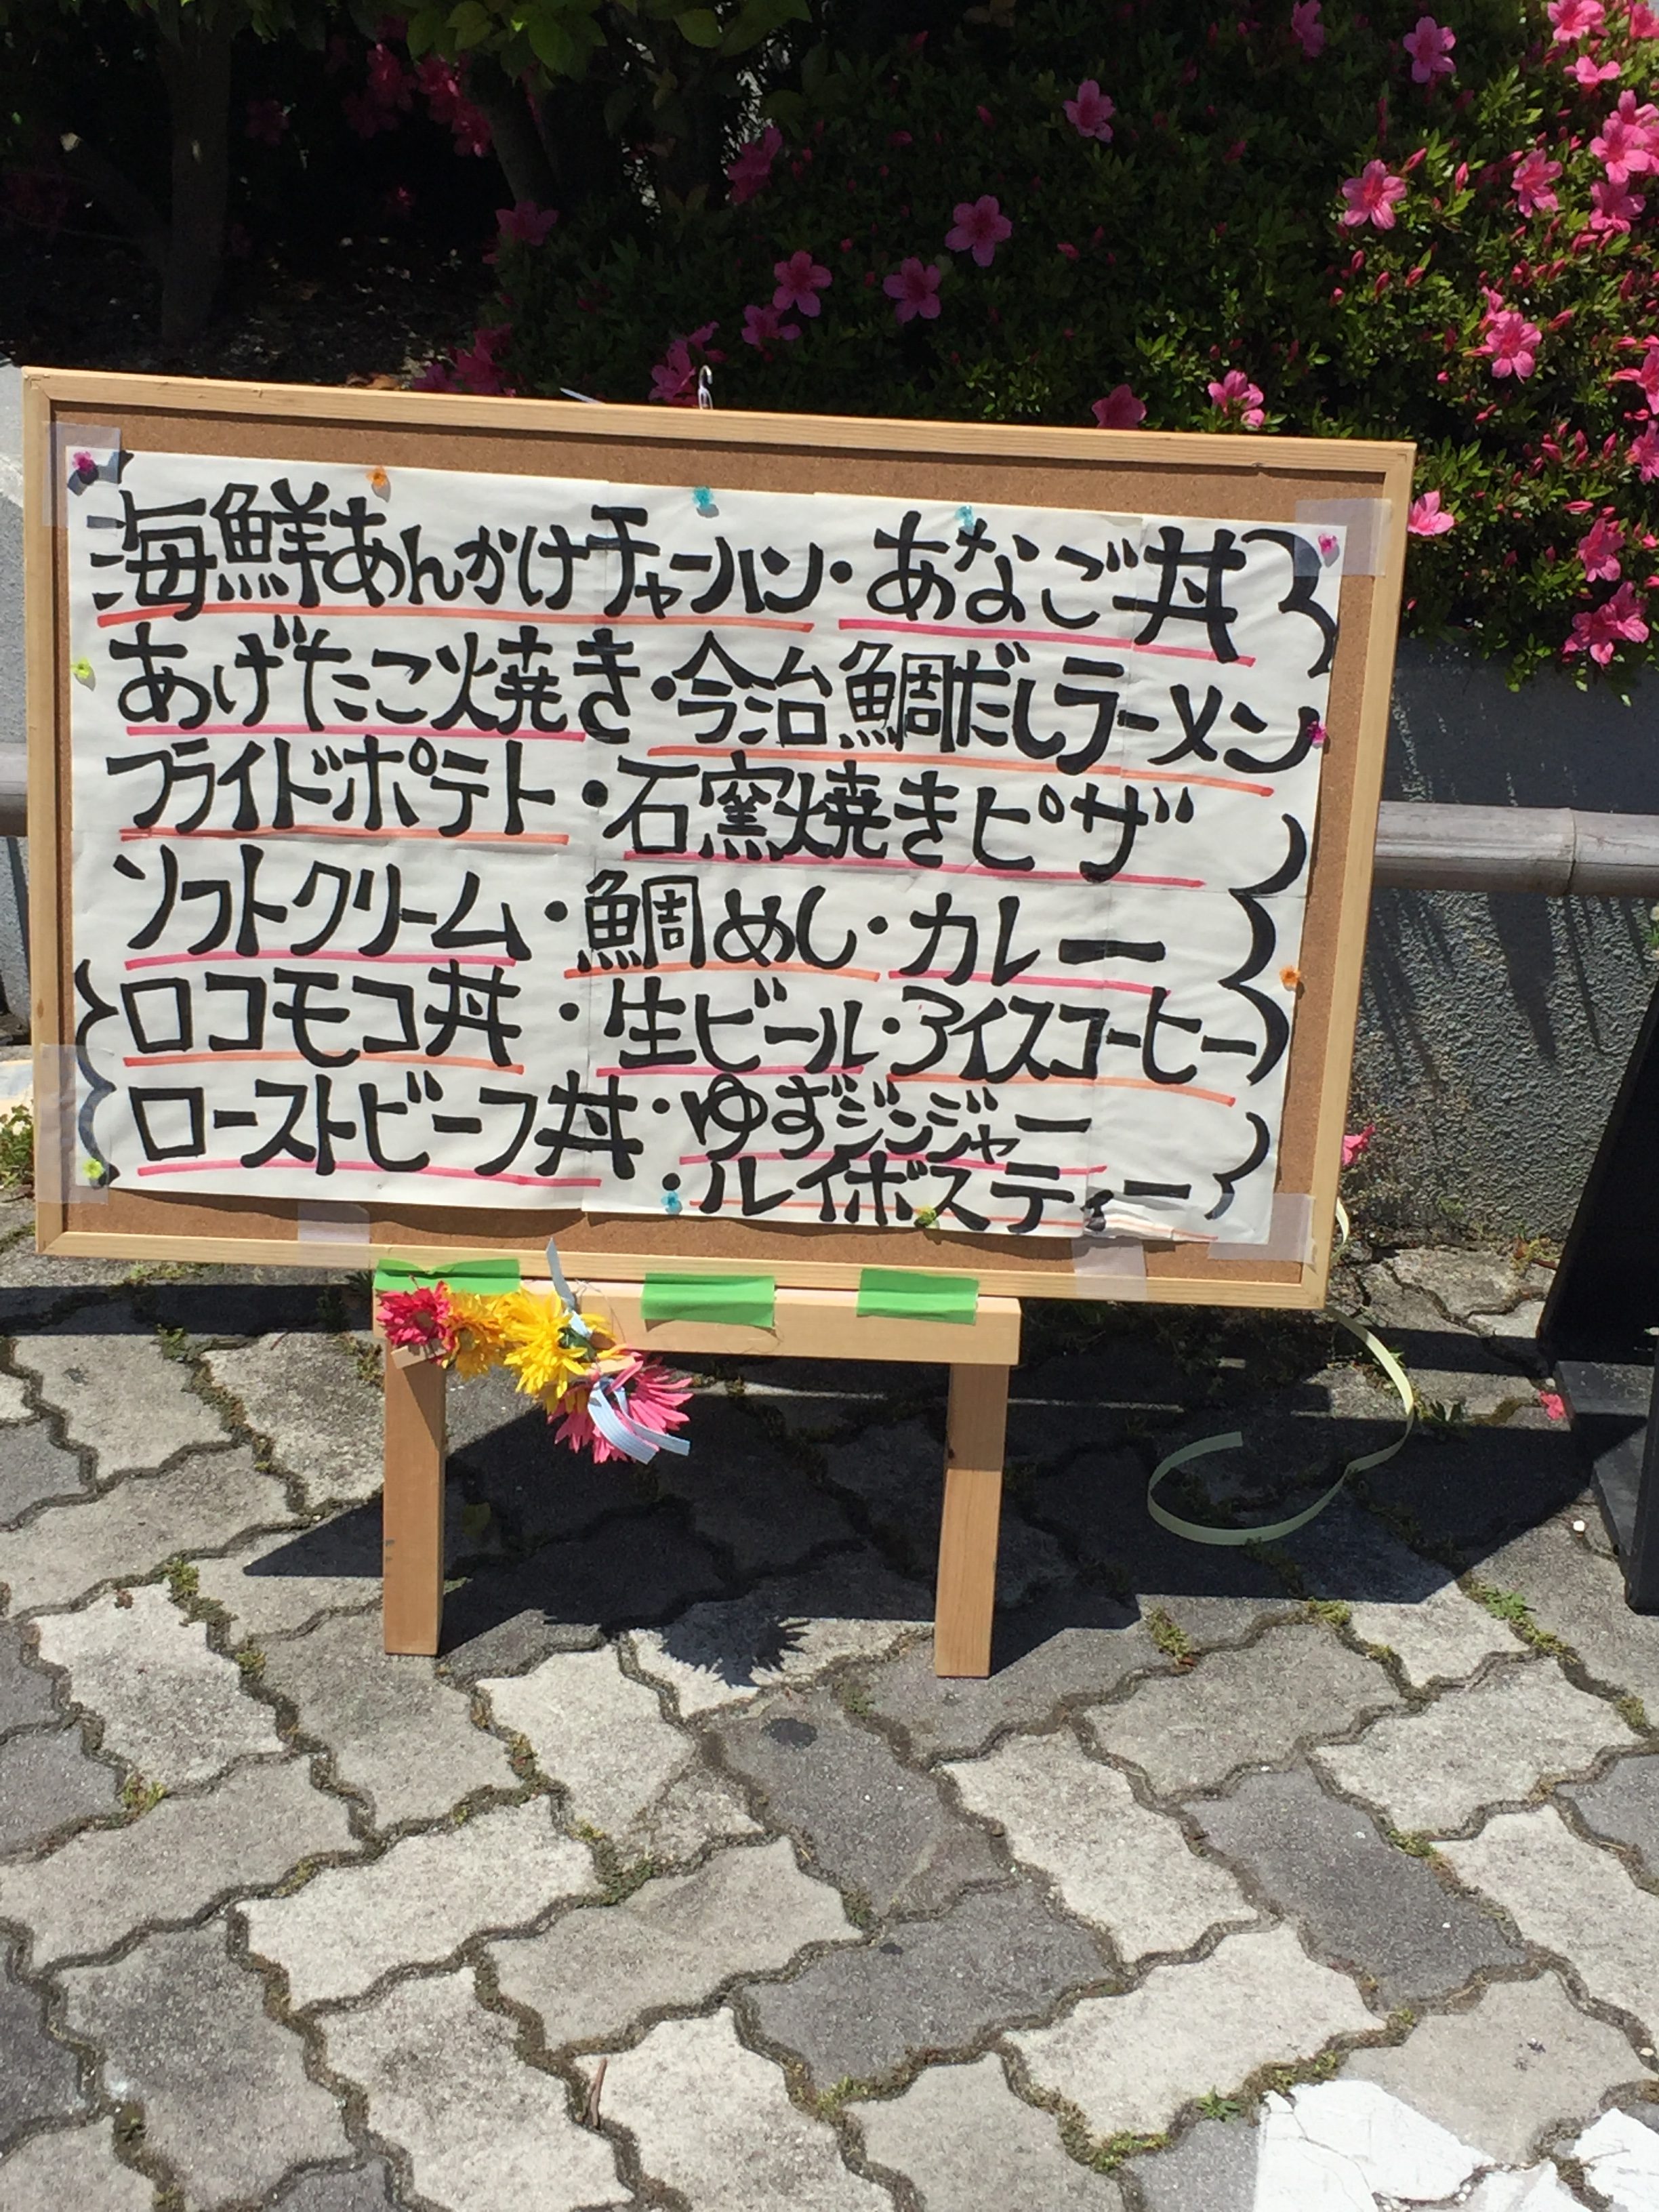 海鮮あんかけチャーハン・あなご丼
あげたこ焼き・今治鯛だしラーメン
フライドポテト・石窯焼きピザ
ソフトクリーム・鯛めし・カレー
ロコモコ丼・生ビール・アイスコーヒー
ローストビーフ丼・ゆずジンジャー
・ルイボスティー